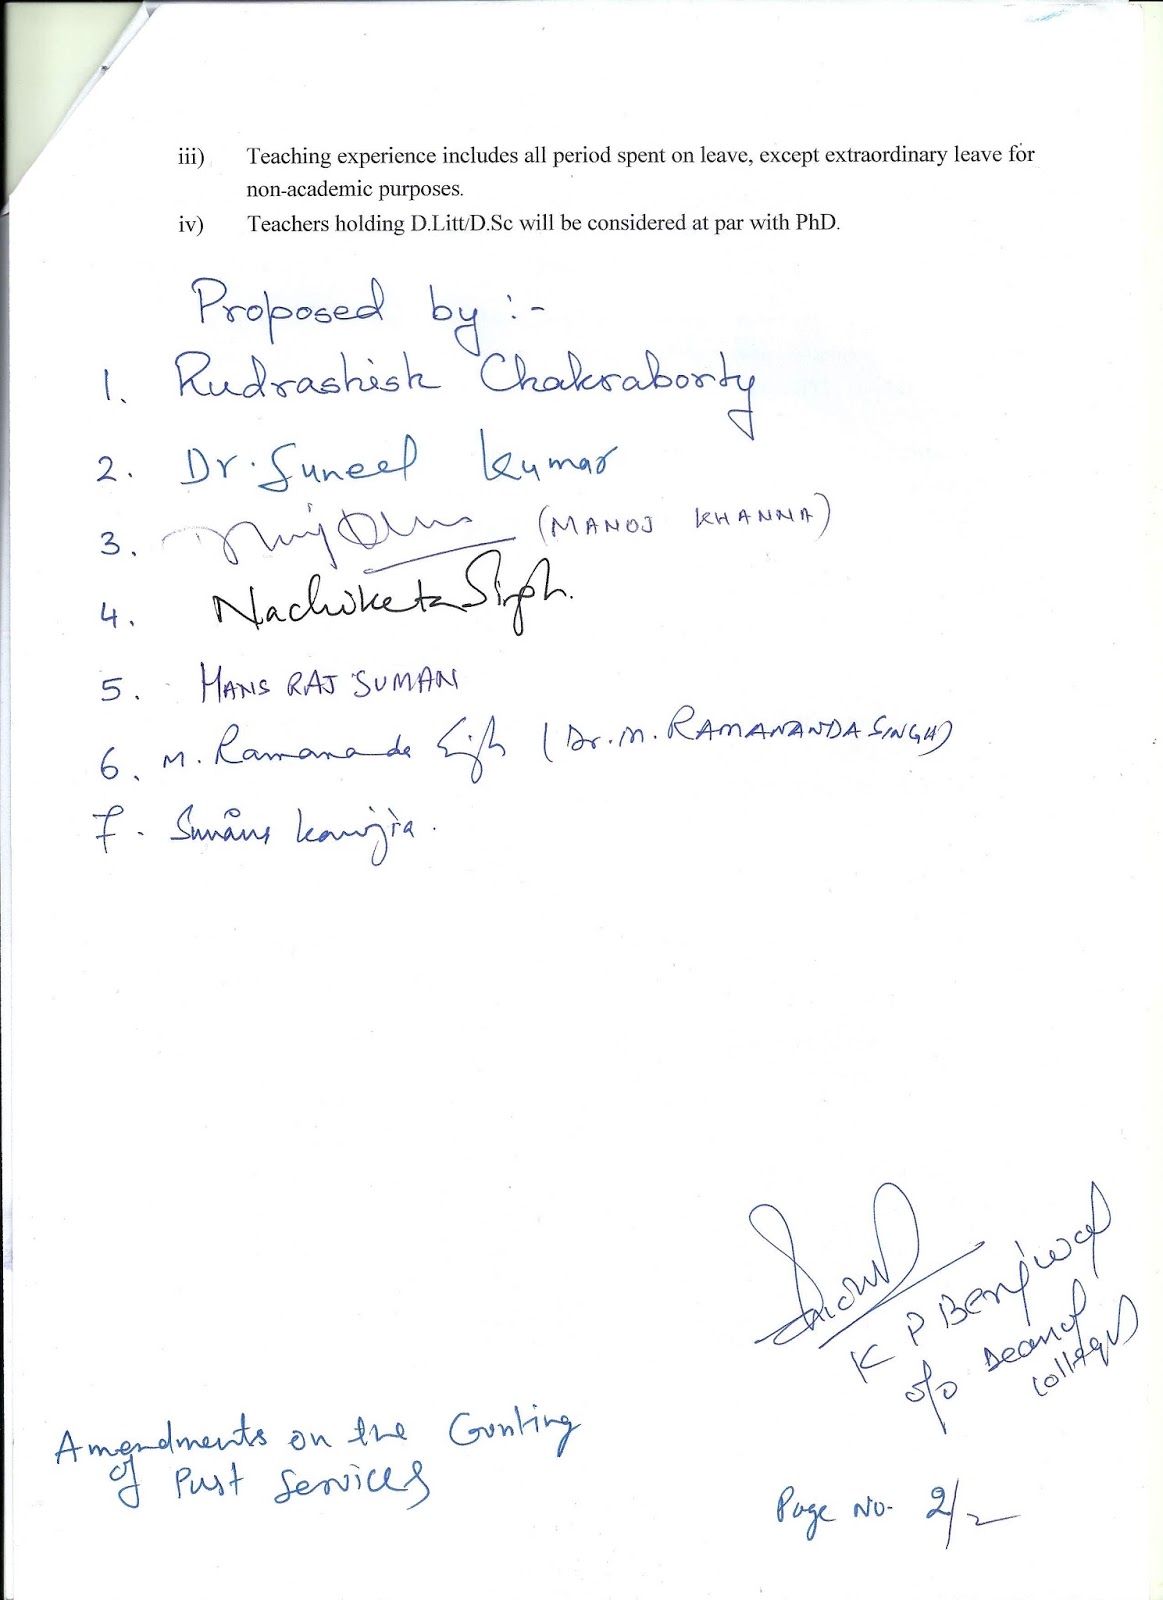 iii) Teaching experience includes all period spent on leave, except extraordinary leave for
non-academic purposes.
iv) Teachers holding D.Litt/D.Sc will be considered at par with PhD.
Proposed by :-
1. Rudrashish Chakraborty
2. Dr. Suneel Kumar
3. (MANOJ KHANNA)
4. Nachiketa Singh.
5. HANS RAJ SUMAN
6. M. Ramananda Singh (Dr. M. RAMANANDA SINGH)
7. Kanojia.
K P Benjwal
o/o Dean of
Colleges
Amendments on the Counting
of Past Services
Page No. 2/2